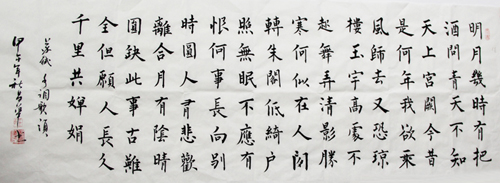 明月幾時有把
酒問青天不知
天上宮闕今昔
是何年我欲乘
風師去又恐瓊
樓玉宇高處不
起舞弄清影勝
寒何似在人間
轉朱閣低綺戶
照無眠不應有
恨何事長向別
時圓人有悲歡
離合月有陰晴
圓缺此事古難
全但願人長久
千里共嬋娟
蘇軾 水調歌頭
甲午年秋